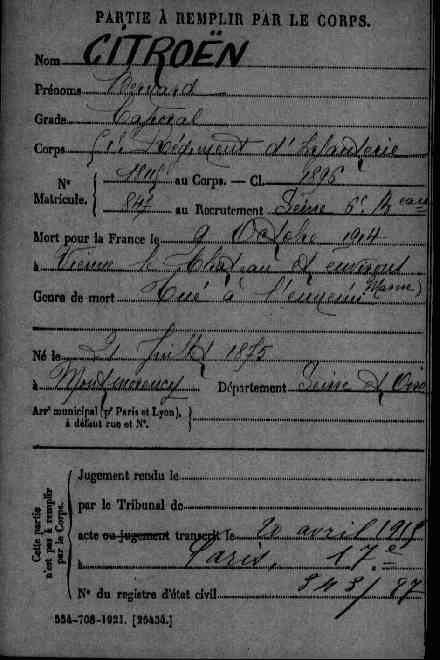 PARTIE À REMPLIR PAR LE CORPS.
Nom CITROËN
Prénoms Bernard
Grade Caporal
Corps Régiment d'Infanterie
N° Matricule. au Corps. — Cl. 1895
847 au Recrutement Seine 6e Beau
Mort pour la France le 9 Octobre 1914
à Vienne le Château et environs
(Marne)
Genre de mort Tué à l'ennemi
Né le 21 Juillet 1875
à Montmorency Département Seine et Oise
Arrt municipal (pr Paris et Lyon), à défaut rue et N°.
Cette partie n'est pas à remplir par le Corps.
Jugement rendu le
par le Tribunal de
acte ou jugement transcrit le 20 avril 1915
à Paris, 17e
N° du registre d'état civil
534-708-1921. [26434.]